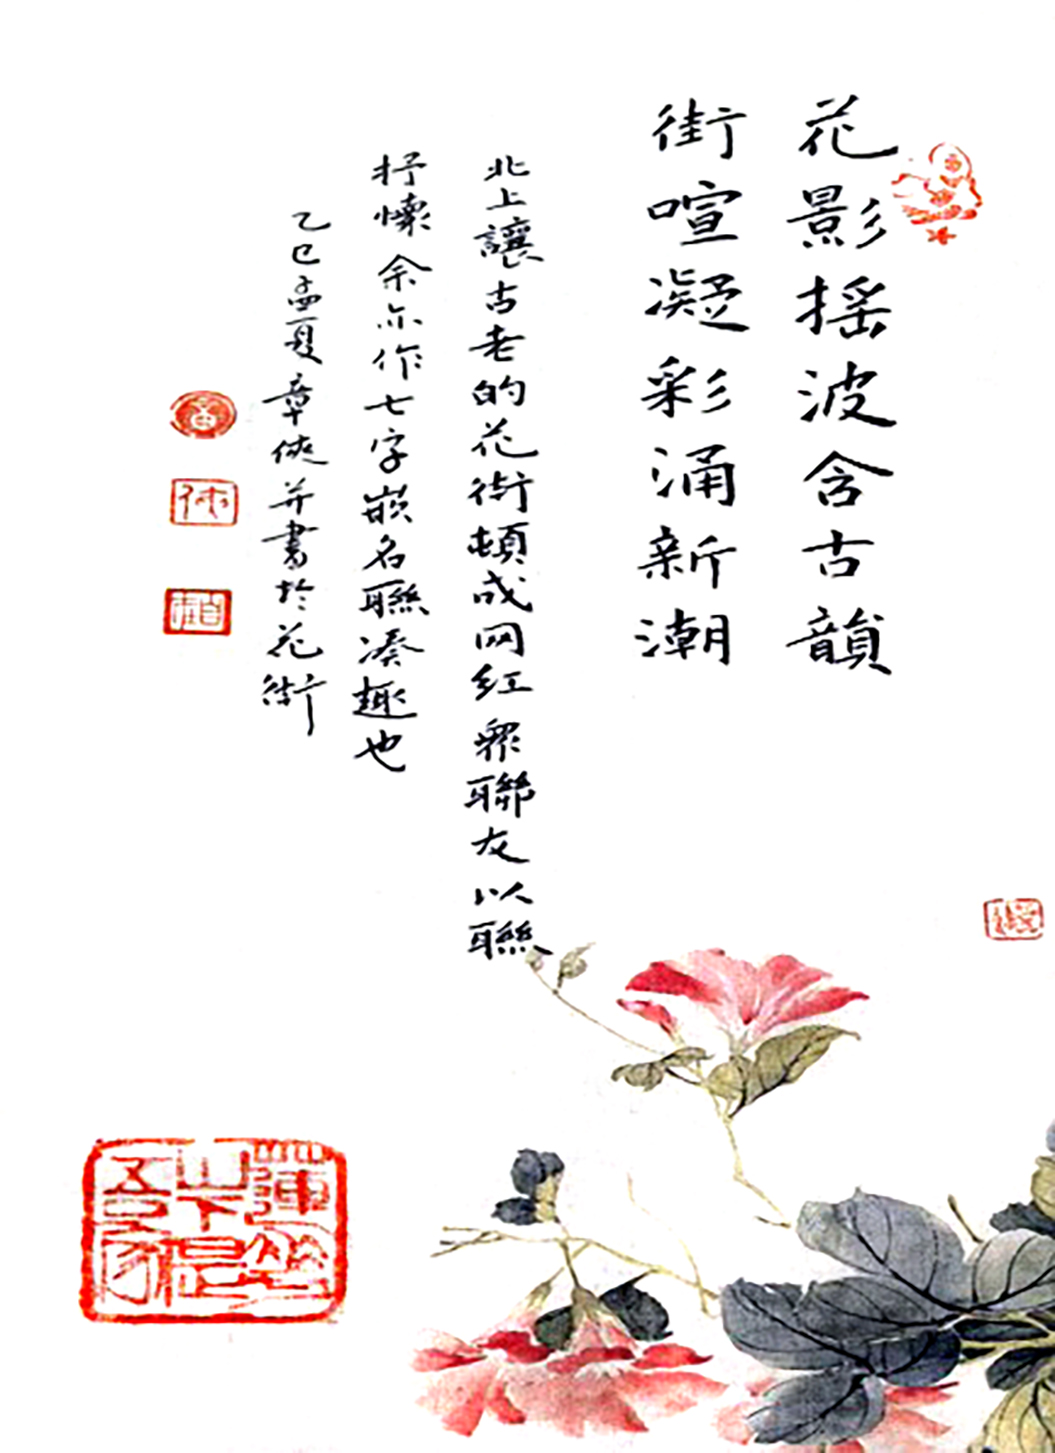 花影摇波含古韻
街喧凝彩涌新潮
北上讓古老的花街頓成网红眾聯友以聯
抒懷余亦作七字嵌名聯凑趣也
乙巳孟夏章俠并書於花街
蓮花山下是吾家